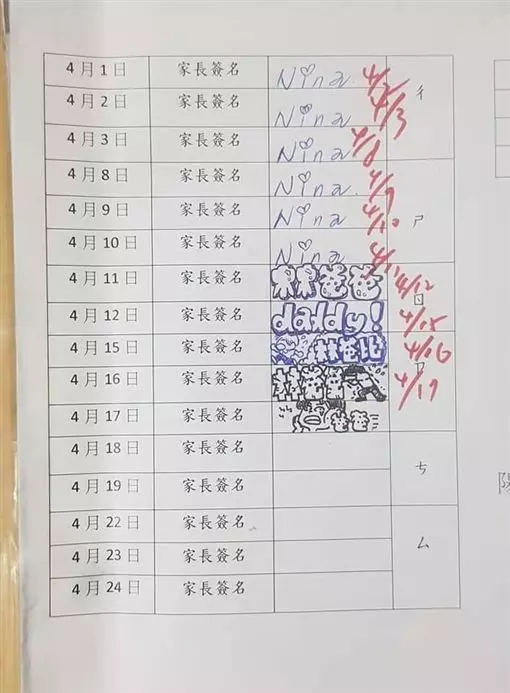 4月1日 家長簽名 Nina 4/2
4月2日 家長簽名 Nina 4/3 ㄔ
4月3日 家長簽名 Nina 4/8
4月8日 家長簽名 Nina 4/9
4月9日 家長簽名 Nina 4/10 ㄕ
4月10日 家長簽名 Nina 4/11
4月11日 家長簽名 林爸爸 4/12
4月12日 家長簽名 daddy! 4/15 ㄖ
4月15日 家長簽名 林爸比 4/16
4月16日 家長簽名 林爸爸 4/17
4月17日 家長簽名 爸爸
4月18日 家長簽名
4月19日 家長簽名 ㄘ
4月22日 家長簽名
4月23日 家長簽名 ㄙ
4月24日 家長簽名